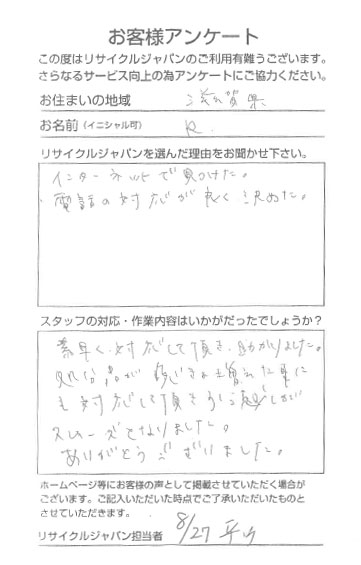 お客様アンケート
この度はリサイクルジャパンのご利用有難うございます。
さらなるサービス向上の為アンケートにご協力ください。
お住まいの地域 滋賀県
お名前（イニシャル可） K.
リサイクルジャパンを選んだ理由をお聞かせ下さい。
インターネットで見つけた。
電話の対応が良く決めた。
スタッフの対応・作業内容はいかがだったでしょうか？
素早く対応して頂き、助かりました。
処分品が 増えた事に
も対応して頂き引越しが
スムーズとなりました。
ありがとうございました。
ホームページ等にお客様の声として掲載させていただく場合が
ございます。ご記入いただいた時点でご了承いただいたものと
させていただきます。
リサイクルジャパン担当者 8/27 平山